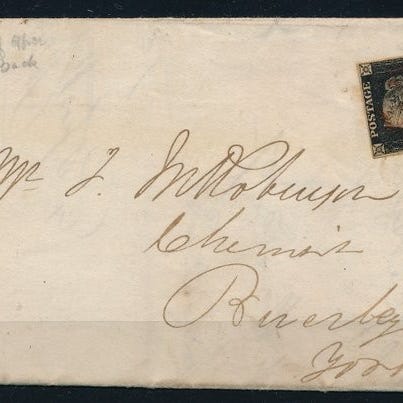 Back
POSTAGE
Mr J. M Robinson
Chemist
Beverley
York